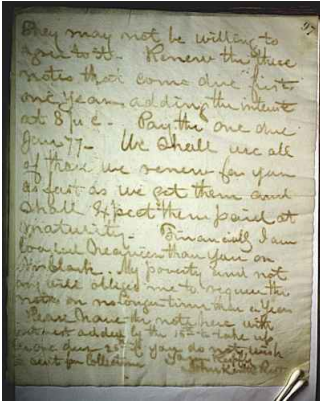 they may not be willing to
give to it. Renew the three
notes that come due first
one year adding the interest
at 8 p c. Pay the one due
Jany 77 - We shall use all
of them we renew for you
as fast as we get them and
shall expect them paid at
maturity - Financially I am
than you on
My poverty and not
my will obliged me to require the
notes on no longer time than a year
Please have the note here with
interest added by the 15th to take up
the one due 20th If you do not wish
it sent for collection Yours truly